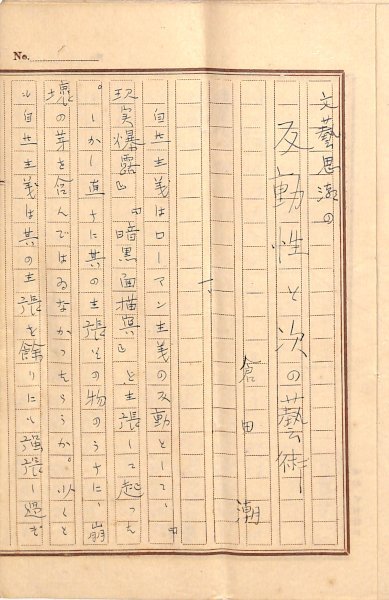 No.
文藝思潮の
反動性と次の藝術
倉田潮
一、
自然主義はローマン主義の反動として、『
現実爆露』『暗黒面描寫』を主張して起つた
。しかし直ちに其の主張その物のうちに、崩
壊の芽を含んではゐなかつたらうか。少くと
も自然主義は其の主張を餘りにも強張し過ぎ